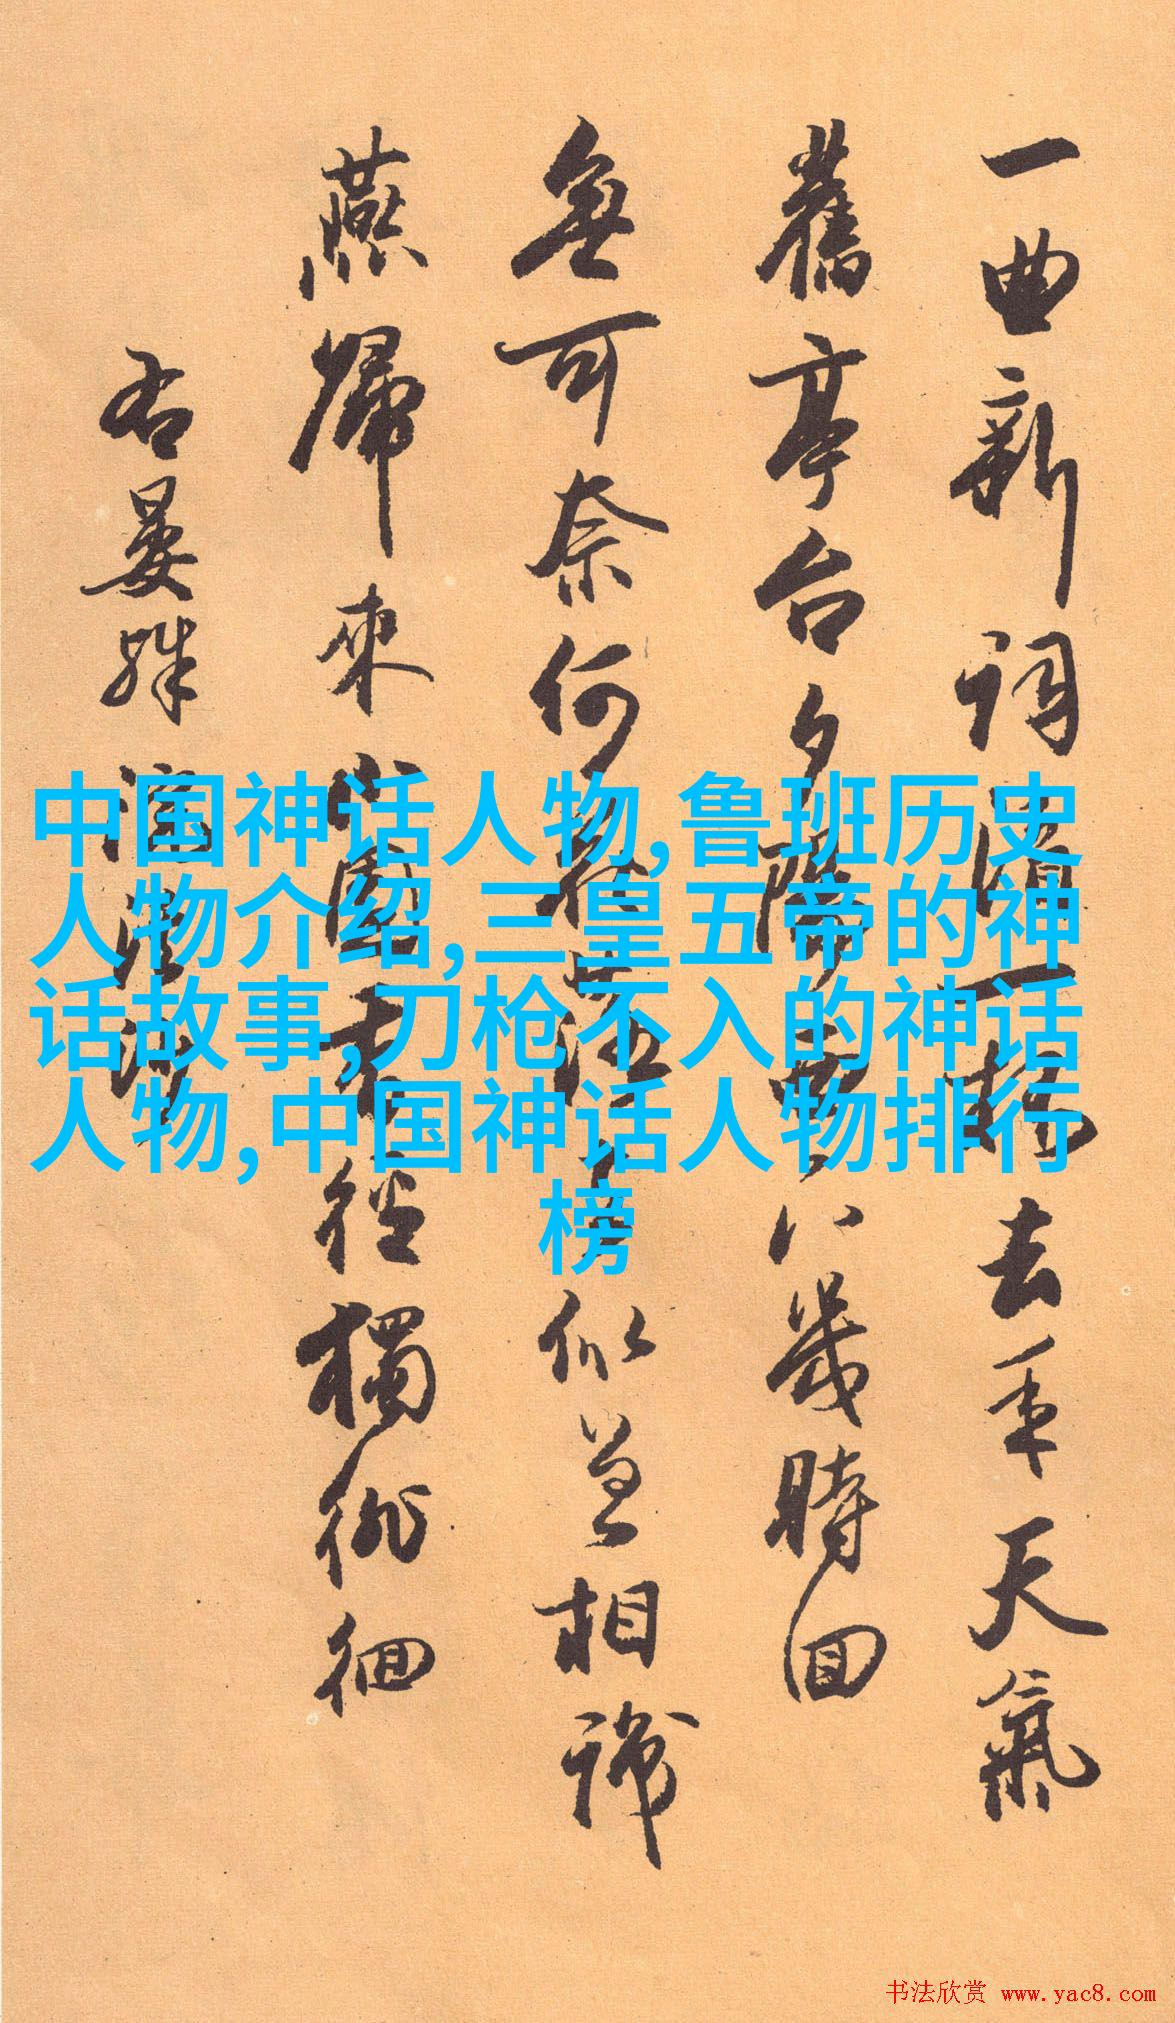 一曲新詞酒一杯去年天氣
舊亭台夕陽西下幾時回
無可奈何花落去似曾相識
燕歸來小園香徑獨徘徊
右晏殊浣溪沙
中国神话人物,鲁班历史
人物介绍,三皇五帝的神
话故事,刀枪不入的神话
人物,中国神话人物排行
榜
书法欣赏 www.yac8.com